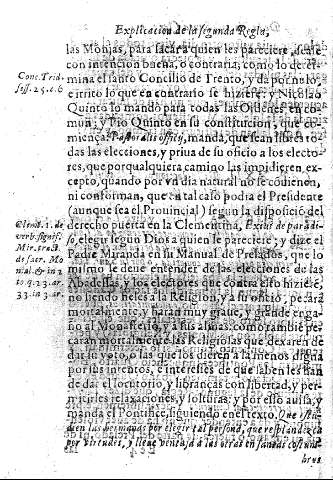 Explicacion de la segunda Regla,
las Monjas, para sacar a quien les pareciere, desde
con intencion buena, o contraria, como lo deter
mina el santo Concilio de Trento, y da por nulo,
e irrito lo que en contrario se hiziere: y Nicolao
Quinto lo mandò para todas las Ordenes en co-
mun, y Pio Quinto en su constitucion, que co-
miença: Pastoralis officij, manda, que sean libres to-
das las elecciones, y priua de su oficio a los electo-
res, que por qualquiera camino las impidieren, ex-
cepto, quando por vn dia natural no se cõuienen,
ni conforman, que en tal caso podia el Presidente
(aunque sea el Prouincial) segun la disposicion del
derecho puesta en la Clementina, Exiui de paradi-
so, elegir segun Dios a quien le pareciere; y dize el
Padre Miranda en su Manual de Prelados, que lo
mismo se deue entender de las elecciones de las
Abadessas, y los electores que contra esto hiziere,
no siendo fieles a la Religion, ya su oficio, pecàra
mortalmente, y haràn muy graue, y grande enga-
ño al Monasterio, y a sus almas: como tambiẽ pe-
caràn mortalmente las Religiosas que dexaren de
dar su voto, o las que los dieren a la menos digna
por sus intentos, e intereses de que saben les han
de dar el locutorio, y libranças con libertad, y per-
mitirles relaxaciones, y solturas: y por esso auisa, y
manda el Pontifice, siguiendo en el Texto, Que estu-
dien las hermanas por elegir tal persona, que resplandezca
por virtudes, y lleue ventaja a las otras en santas costum
bres
Conc. Trid.
sess. 25. c. 6
Clemēt. 1. de
verb. signif.
Mir. tract.
de sacr. Mo
nial. & in 2
to. q. 23. ar.
33. in 3. ar.